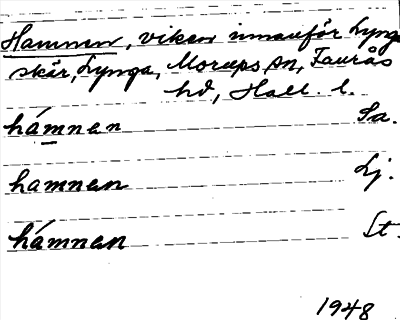 Hamnen, viken innanför Lynga
skär, Lynga, Morups sn, Faurås
hd, Hall. l.
hámnan Sa.
hamnan Lj.
hámnan St.
1948